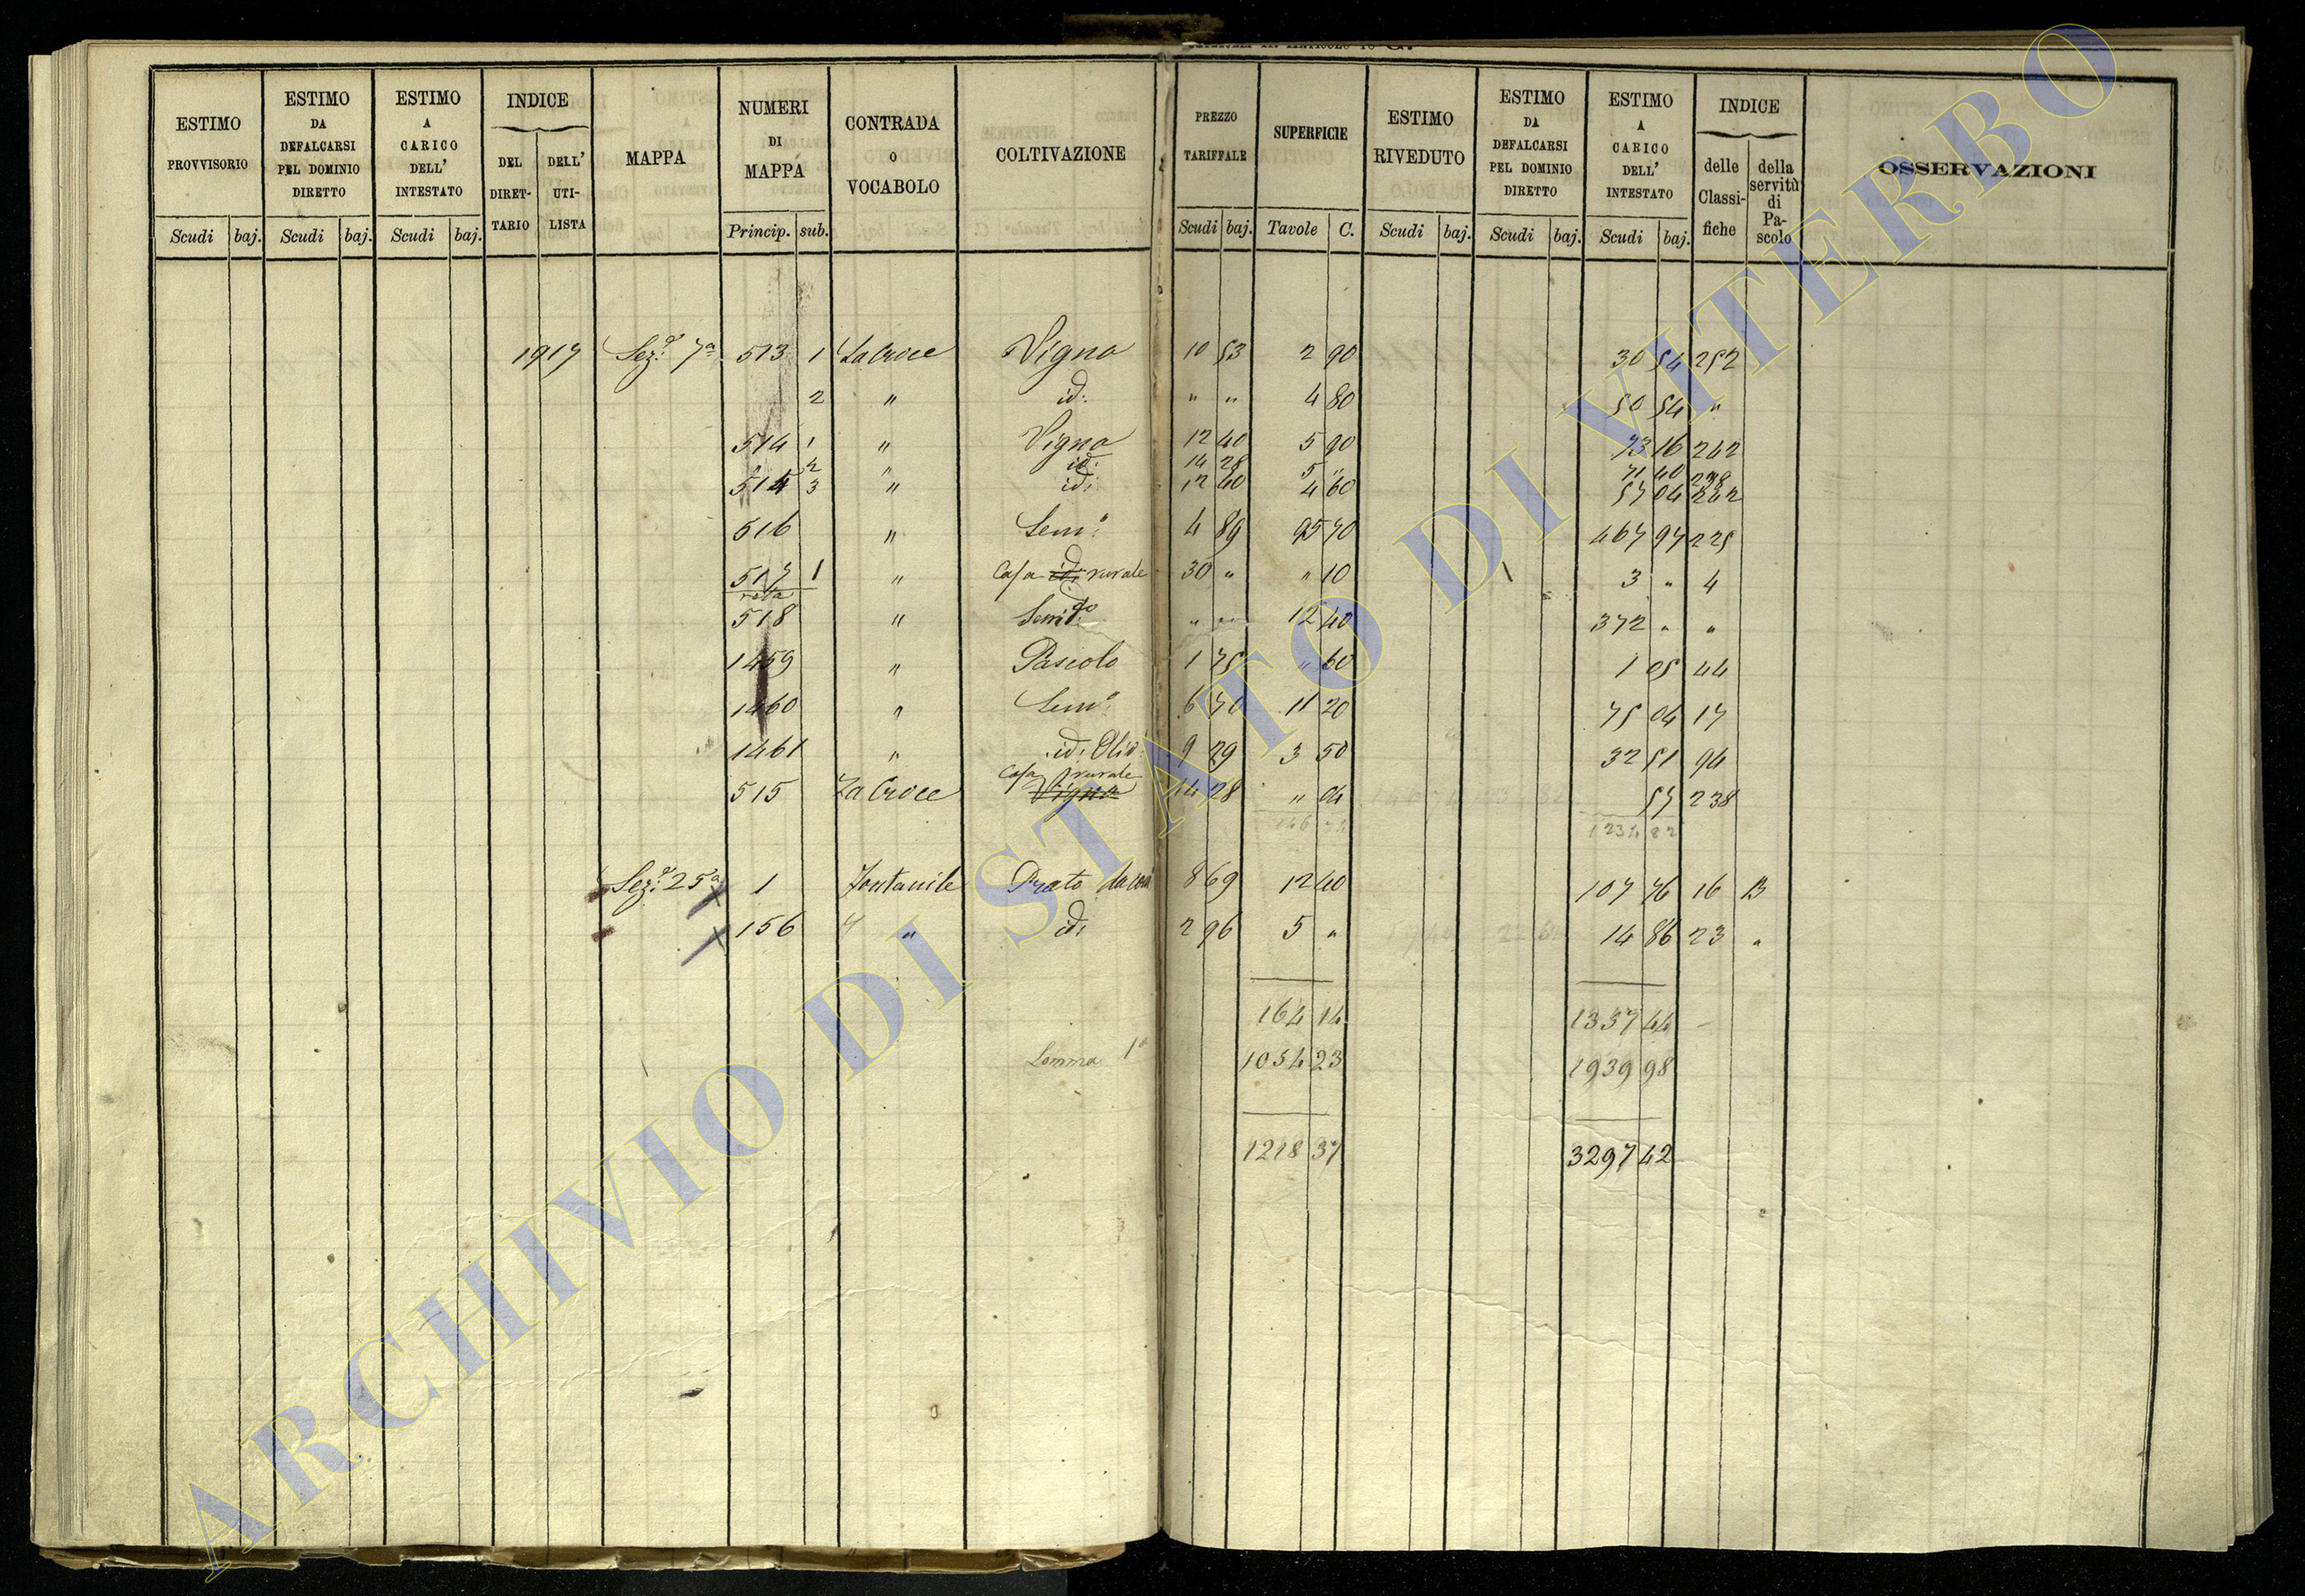 ESTIMO PROVVISORIO
ESTIMO DA DEFALCARSI PEL DOMINIO DIRETTO
ESTIMO A CARICO DELL' INTESTATO
INDICE
DEL DIRET-TARIO
DELL' UTI-LISTA
MAPPA
NUMERI DI MAPPA
CONTRADA O VOCABOLO
COLTIVAZIONE
PREZZO TARIFFALE
SUPERFICIE
ESTIMO RIVEDUTO
ESTIMO DA DEFALCARSI PEL DOMINIO DIRETTO
ESTIMO A CARICO DELL' INTESTATO
INDICE
delle Classi-fiche
della servitù di Pa-scolo
OSSERVAZIONI
Scudi baj. Scudi baj. Scudi baj. Princip. sub. Scudi baj. Tavole C. Scudi baj. Scudi baj. Scudi baj.
1917 Sez.e 7a 513 1 La Croce Vigna 10 53 2 90 30 54 252
2 " id: " " 4 80 50 54 "
514 1 " Vigna 12 40 5 90 73 16 242
2 " id: 14 28 5 " 71 40 238
514 3 " id: 12 40 4 60 57 04 242
516 " Sem.o 4 89 95 70 467 97 225
517 1 " Casa rurale 30 " " 10 3 " 4
rata
518 " " 12 40 372 " "
1459 " Pascolo 1 75 " 60 1 05 44
1460 " Sem.o 6 70 11 20 75 04 17
1461 " id: Oliv. 9 29 3 50 32 51 94
515 La Croce Casa rurale Vigna 14 28 " 04 57 238
146 74 1234 82
Sez.e 25a 1 Fontanile Prato 8 69 12 40 107 76 16 B
156 " " id: 2 96 5 " 14 86 23 "
164 14 1337 44
Somma 1a 1054 23 1939 98
1218 37 3297 42
ARCHIVIO DI STATO DI VITERBO